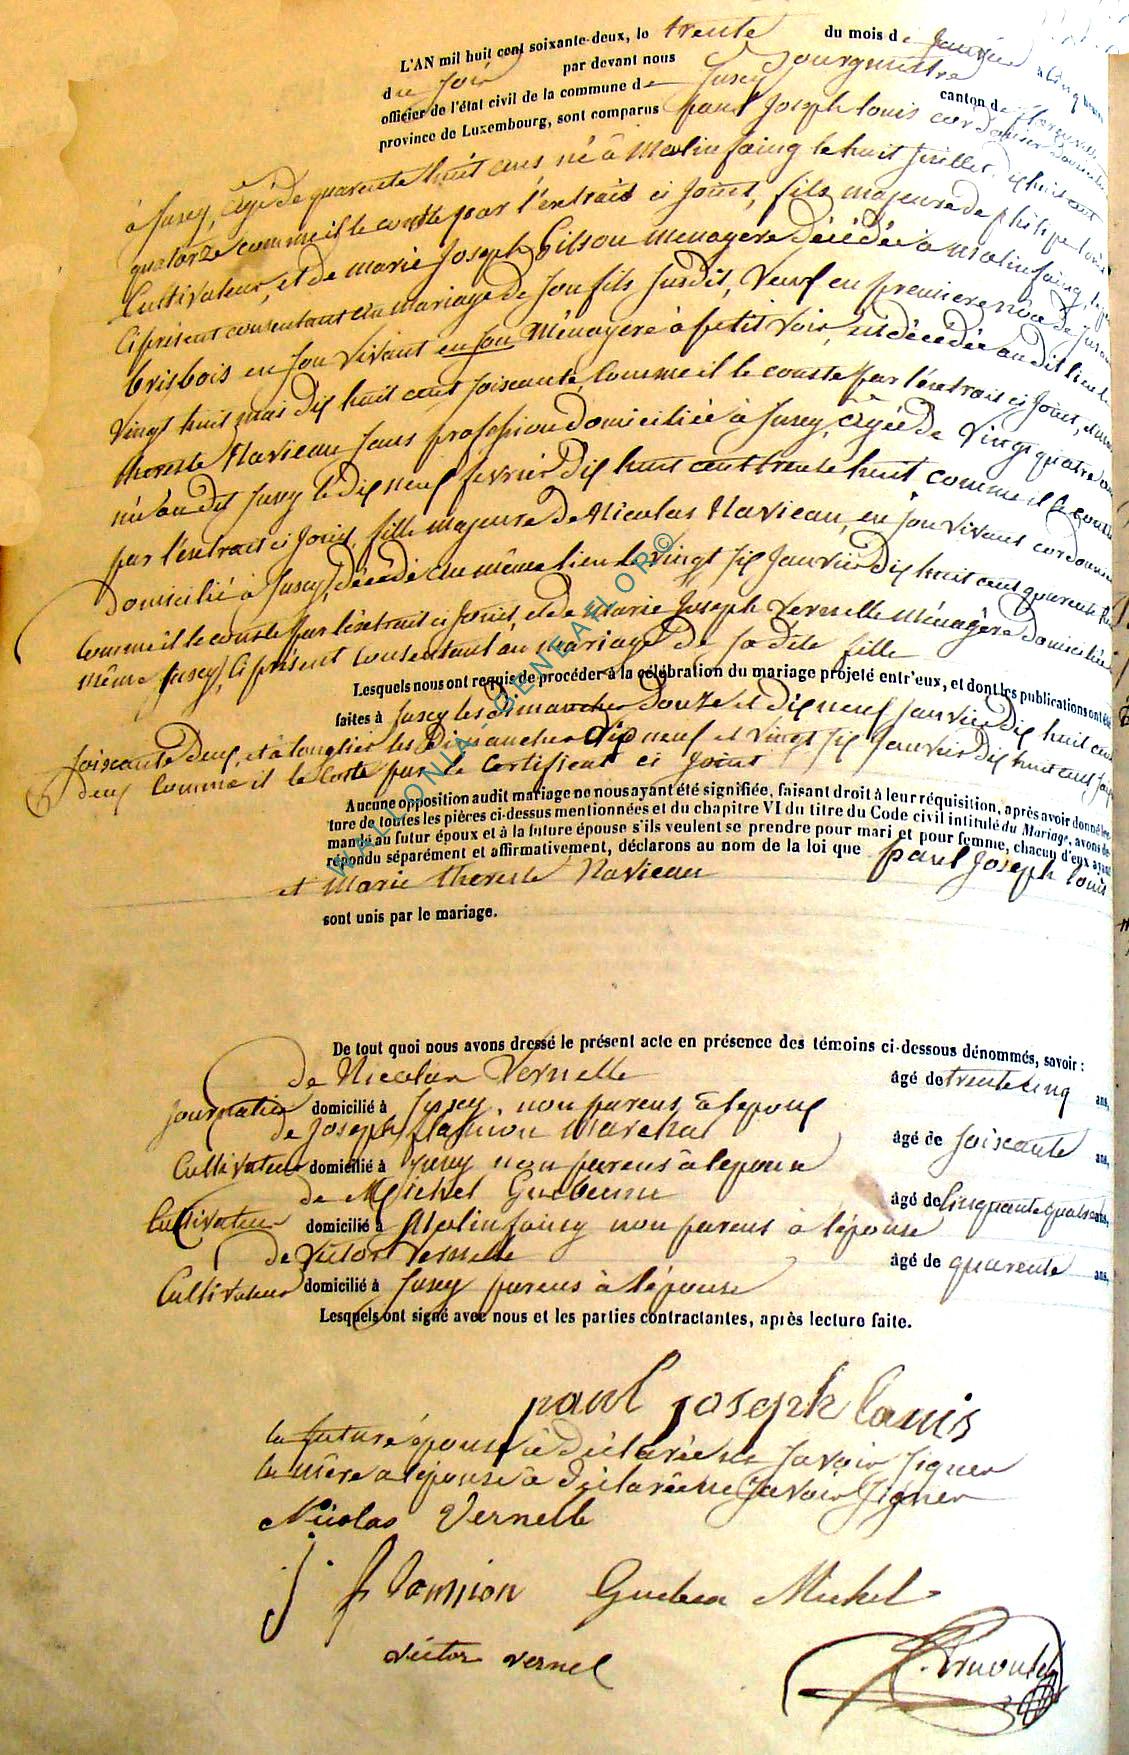 L'AN mil huit cent soixante-deux, le trente du mois de Janvier à cinq heures
du soir par devant nous Bourgmestre
officier de l'état civil de la commune de Jusey canton de
province de Luxembourg, sont comparus paul Joseph louis cordonnier domicilié
à Jusey, âgé de quarente huit ans né à Molinfaing le huit Juillet dix huit cent
quatorze comme il le conste par l'extrait ci Joint, fils majeure de philippe louis
Cultivateur, et de marie Joseph Gilson menagère décédée à molinfaing,
Ci présent consentant au mariage de son fils susdit, Veuf en premiere noce de
brisbois en son vivant en son Ménagère à petit voir, et décédée au dit lieu le
Vingt huit mai dix huit cent soixcante, Comme il le conste par l'extrait ci Joint, et
therese Navieau sans profession domiciliée à Jusey, âgée de Vingt quatre ans
née au dit Jusey le dix neuf fevrier dix huit cent trente huit comme il le conste
par l'extrait ci Joint, fille majeure de Nicolas Navieau, en son vivant cordonnier
domicilié à Jusey, décédé au même lieu le vingt six Janvier dix huit cent quarente
Comme il le conste par l'extrait ci Joint, et de Marie Joseph Vernelle Ménagère domiciliée
même Jusey, Ci présent consentant au mariage de sa dite fille
Lesquels nous ont requis de procéder à la célébration du mariage projeté entr'eux, et dont les publications ont été
faites à Jusey les dimanches douze et dix neuf Janvier dix huit cent
soixcante deux, et à longlier les Dimanches dix neuf et vingt six Janvier dix huit cent
deux Comme il le conste par le Certificat ci Joint
Aucune opposition audit mariage ne nous ayant été signifiée, faisant droit à leur réquisition, après avoir donné lec-
ture de toutes les pièces ci-dessus mentionnées et du chapitre VI du titre du Code civil intitulé du Mariage, avons de-
mandé au futur époux et à la future épouse s'ils veulent se prendre pour mari et pour femme, chacun d'eux ayant
répondu séparément et affirmativement, déclarons au nom de la loi que paul Joseph louis
et Marie therese Navieau
sont unis par le mariage.
De tout quoi nous avons dressé le présent acte en présence des témoins ci-dessous dénommés, savoir :
de Nicolas Vernelle âgé de trente cinq ans,
Journalier domicilié à Jusey, non parens à lepoux
de Joseph flamion Marchal âgé de soixcante ans,
Cultivateur domicilié à Jusey non parens à lepoux
de Michel âgé de Cinquante quatre ans,
Cultivateur domicilié à Molinfaing non parens à l'épouse
de Victor Vernelle âgé de quarente ans,
Cultivateur domicilié à Jusey parens à l'épouse
Lesquels ont signé avec nous et les parties contractantes, après lecture faite.
paul joseph louis
la future épouse à déclarée ne savoir signer
la mère a lépouse à déclarée ne savoir signer
Nicolas Vernelle
J. flamion Michel
victor vernel
WALLONIA - GENEAFLOR ©